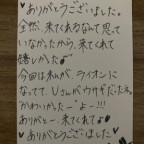 ありがとうございました。
全然、来てくれるなんて思って
いなかったから、来てくれて
嬉しかった
今回は私が、ライオンに
なってて、Uさんがウサギだったネ。
かわいかたーよー!!
ありがとー、来てくれて
ありがとうございました